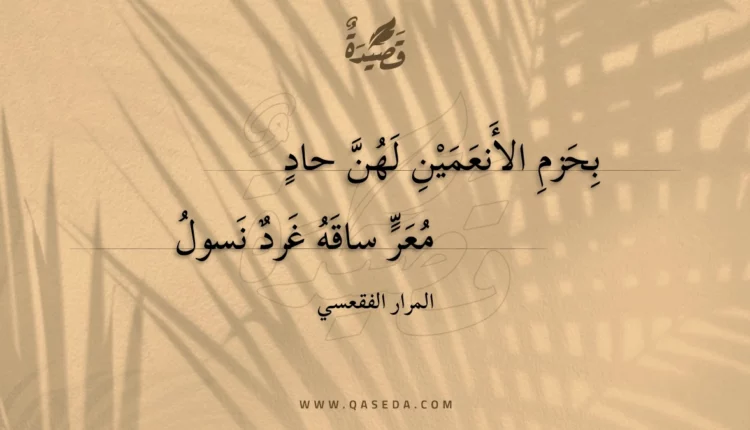 قَصِيدَةٌ
بِحَزمِ الأَنعَمَيْنِ لَهُنَّ حادٍ
مُعَرٍّ ساقَهُ غَردٌ نَسولُ
المرار الفقعسي
WWW.QASEDA.COM